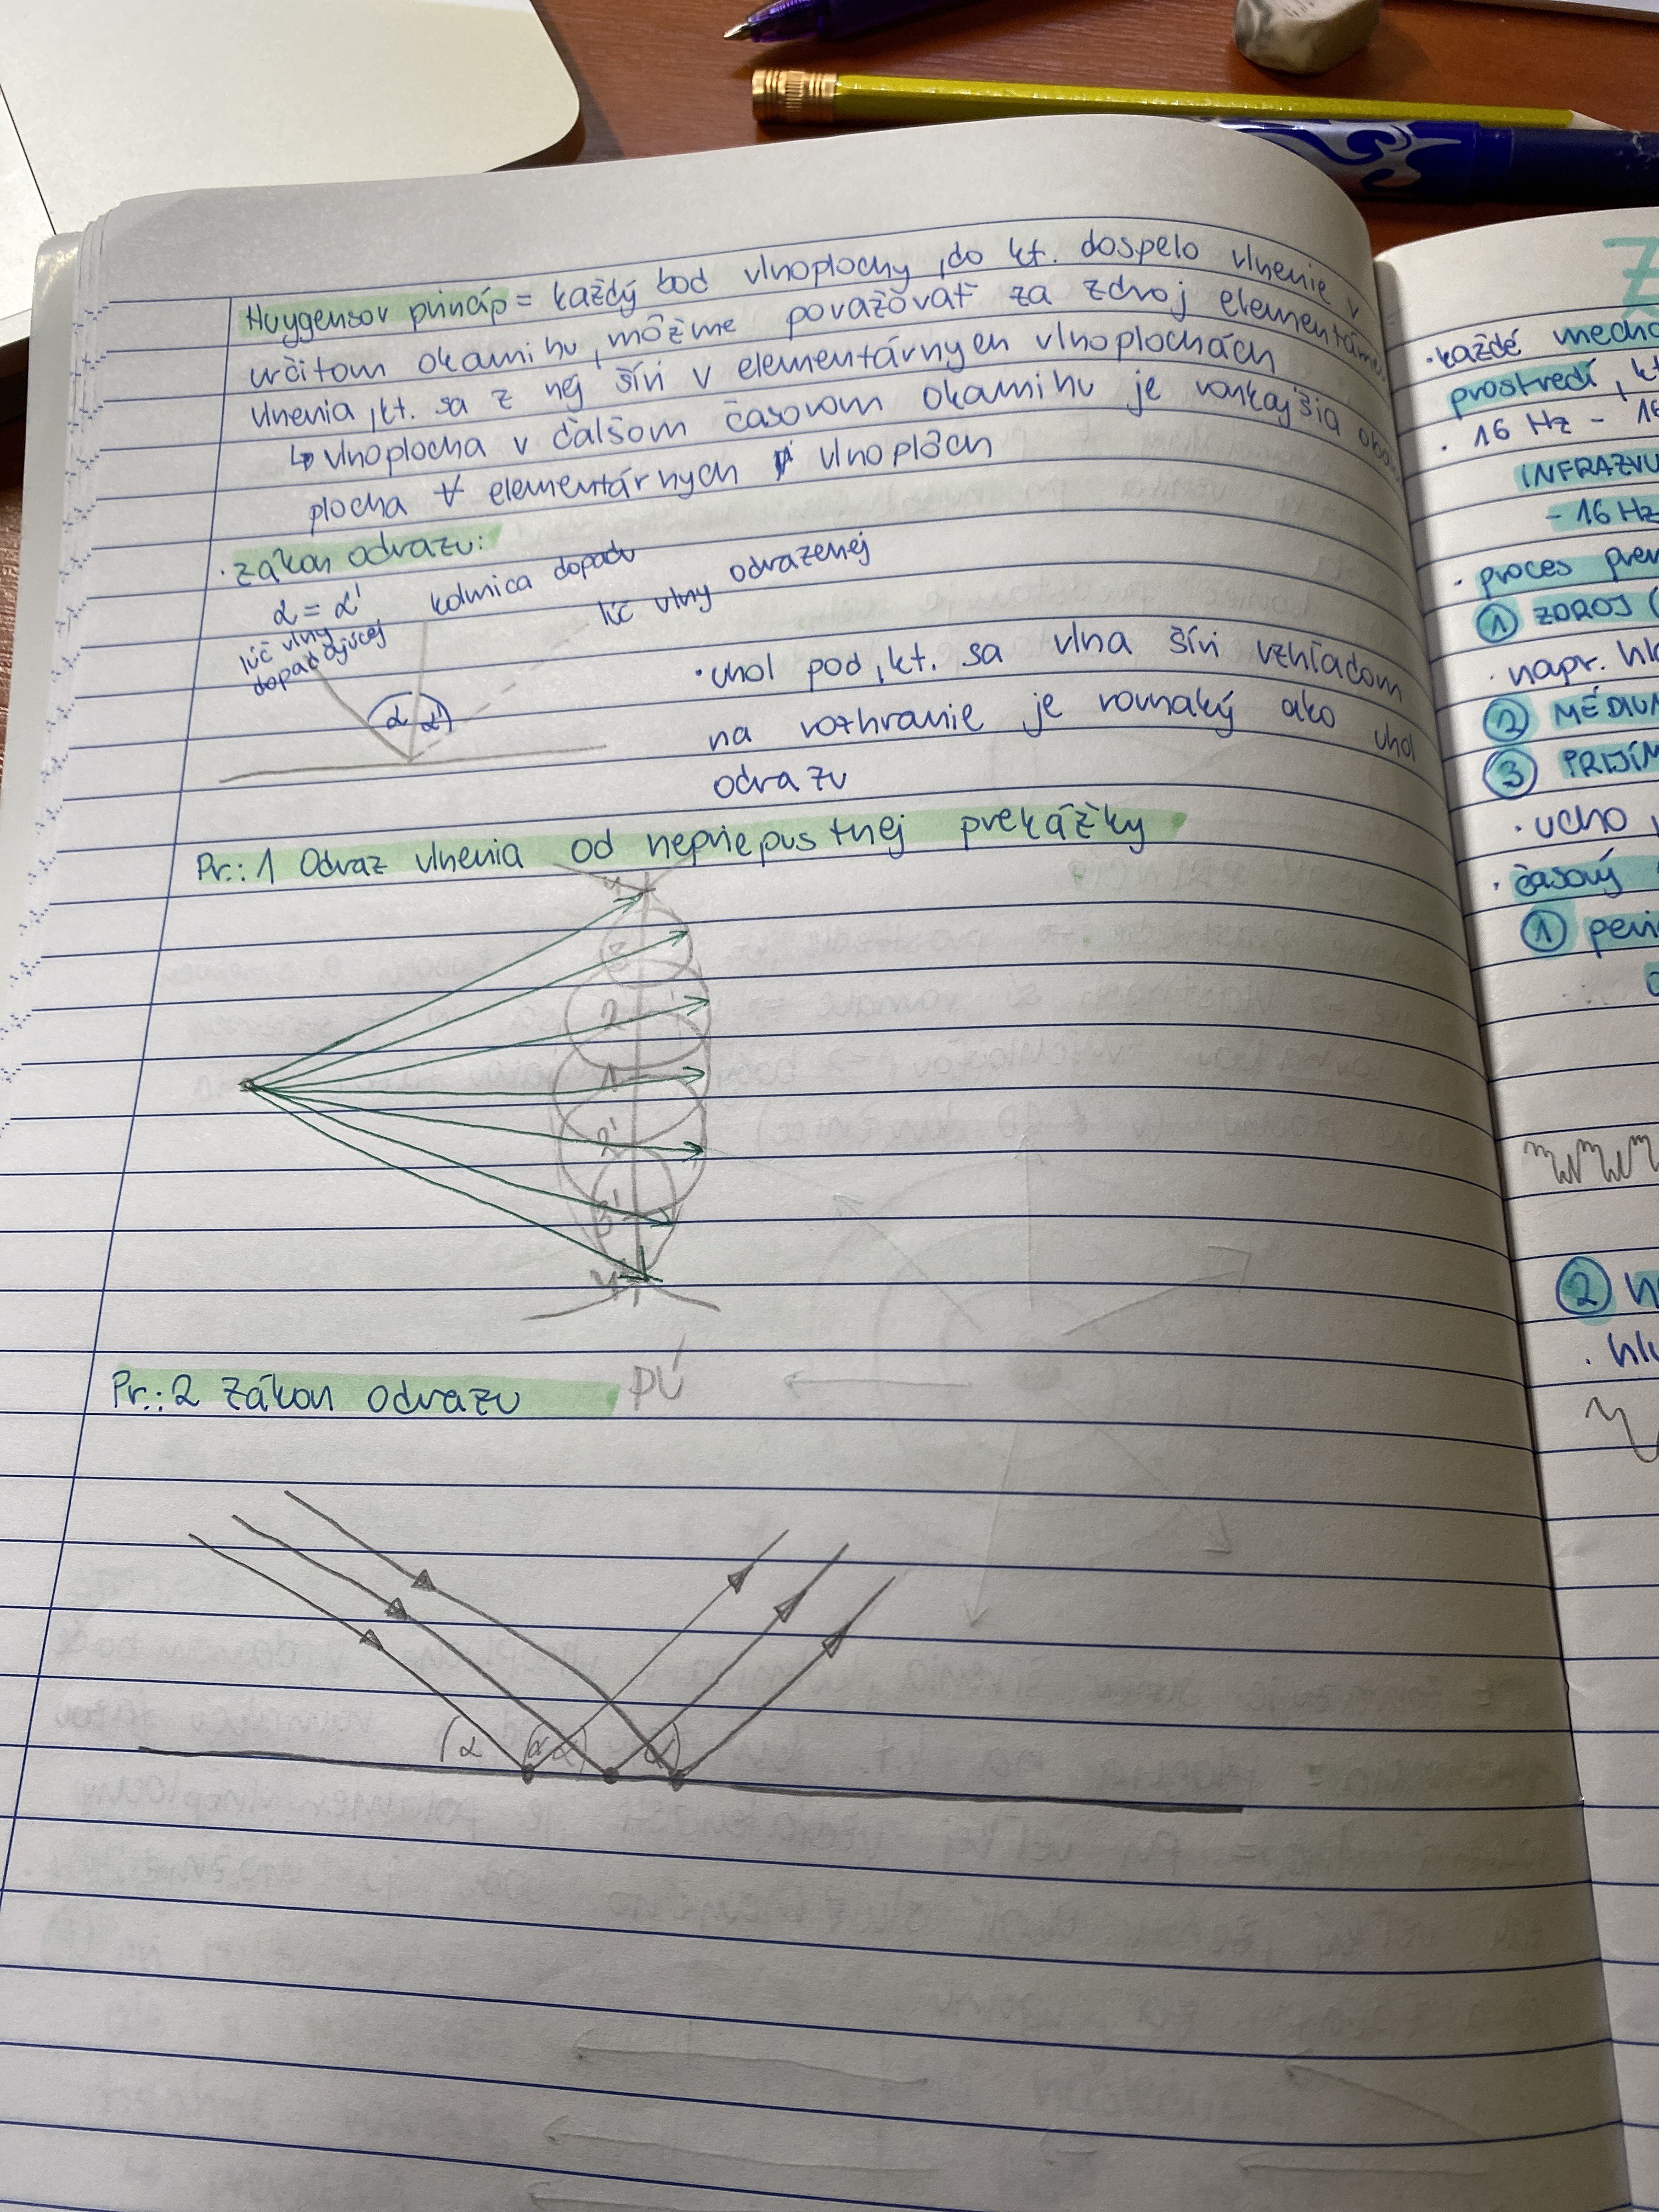 Huygensov princíp = každý bod vlnoplochy, do kt. dospelo vlnenie v
určitom okamihu, môžme považovať za zdroj elementárne
vlnenia, kt. sa z nej šíri v elementárnych vlnoplochách
↳ vlnoplocha v ďalšom časovom okamihu je vonkajšia
plocha ∀ elementárnych vlnoplôch
· zákon odrazu:
α = α'
kolmica dopadu
lúč vlny odrazenej
lúč vlny
dopadajúcej
α α'
· uhol pod, kt. sa vlna šíri vzhľadom
na rozhranie je rovnaký ako uhol
odrazu
Pr.: 1 Odraz vlnenia od nepriepustnej prekážky
4
3
2
1
2'
3'
4'
PÚ
Pr.: 2 Zákon odrazu
α α α α
· každé mecha
prostredí, kt
· 16 Hz - 16
INFRAZVU
- 16 Hz
· proces pren
① ZDROJ (
· napr. hla
② MÉDIUM
③ PRIJÍM
· ucho
· časový
① peri
②
· hlu